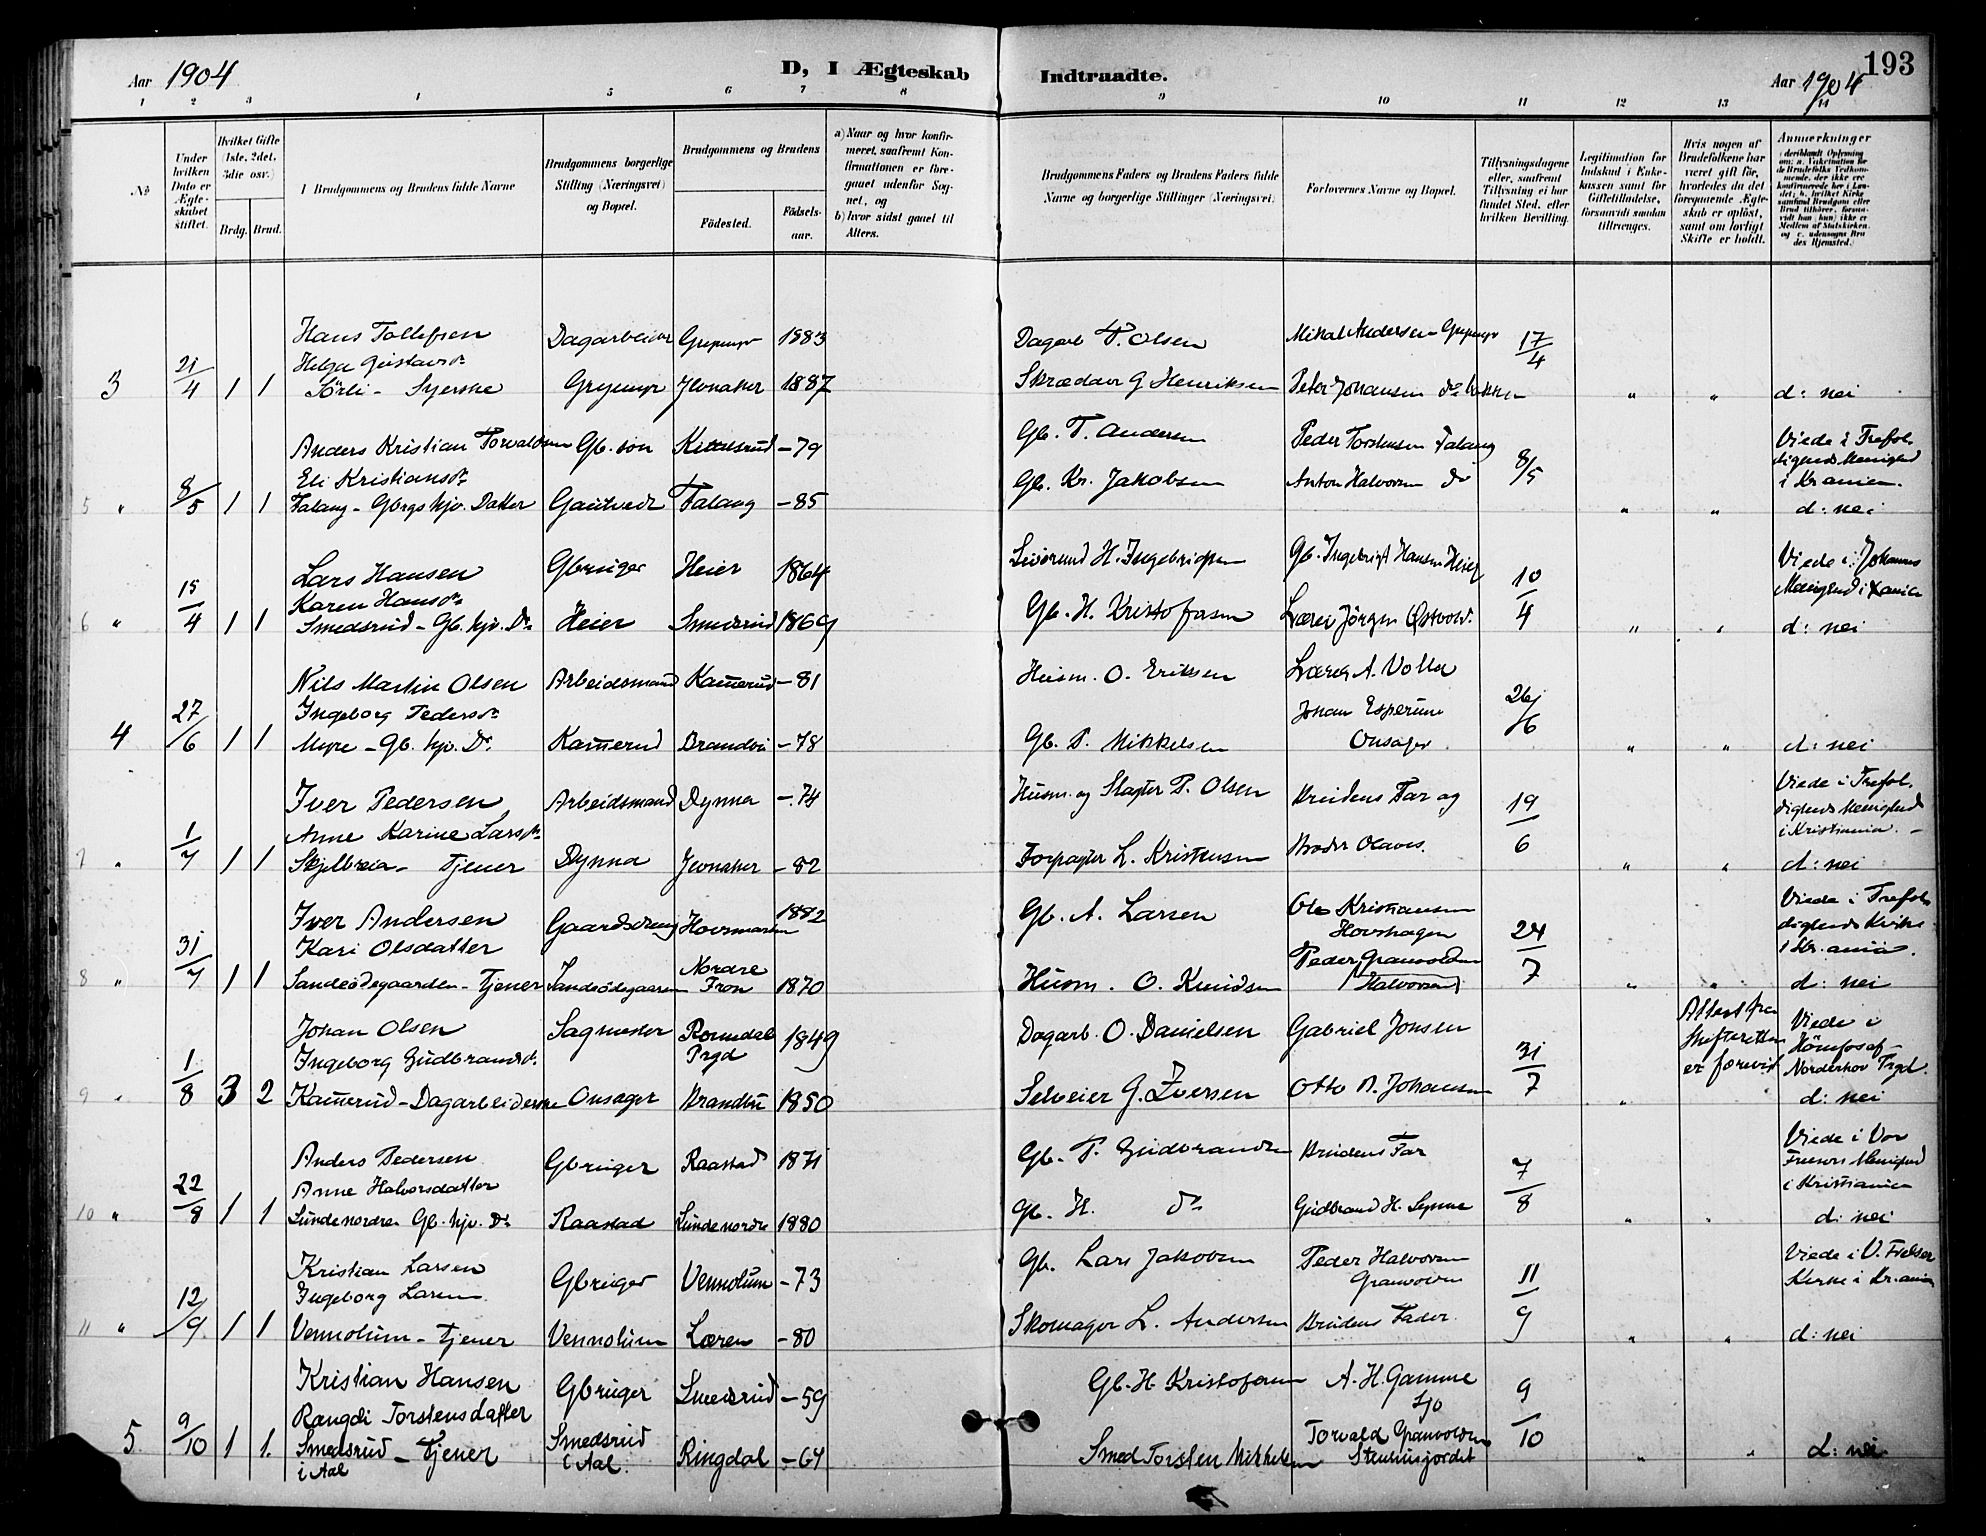 Aar 1904
D, I Ægteskab Indtraadte.
193
Aar 1904
1 2 3 4 5 6 7 8 9 10 11 12 13 14
No
Under hvilken Dato er Ægteskabet stiftet.
Hvilket Gifte (1ste, 2det, 3die osv.)
Brdg. Brud.
Brudgommens og Brudens fulde Navne
Brudgommens borgerlige Stilling (Næringsvei) og Bopæl.
Brudgommens og Brudens
Födested.
Födselsaar.
a) Naar og hvor konfirmeret, saafremt Konfirmationen er foregaaet udenfor Sognet, og
b) hvor sidst gaaet til Alters.
Brudgommens Faders og Brudens Faders fulde Navne og borgerlige Stillinger (Næringsvei)
Forlovernes Navne og Bopæl.
Tillysningsdagene eller, saafremt Tillysning ei har fundet Sted, efter hvilken Bevilling.
Legitimation for Indskud i Enkekassen samt for Giftetilladelse, forsaavidt saadan tiltrænges.
Hvis nogen af Brudefolkene har været gift för, hvorledes da det foregaaende Ægteskab er oplöst, samt om lovligt Skifte er holdt.
Anmerkninger
3 21/4 1 1
Hans Tollefsen
Helga Gustavsdr.
Sörli - Syerske
Dagarbeider
Grymyr
Grymyr 1883
Jevnaker 1887
Dagarb T. Olsen
Skrædder G Henriksen
Mikal Andersen Grymyr
Peter Johansen
17/4 " " d: nei
5 " 8/5 1 1
Anders Kristian Torvaldsen
Eli Kristiansdr.
Falang - Gbrgs hjv. Datter
Gb. sön
Kittilsrud - 79
Falang - 85
Gb. T. Andersen
Gb. Kr. Jakobsen
Peder Torstensen Falang
Anton Halvorsen do
8/5 " "
Viede i Trefoldigheds Menighed
i Kr.ania.
d: nei
6 " 15/4 1 1
Lars Hansen
Karen Hansdr.
Smedsrud - Gb. hjv. Dr.
Gbruger
Heier
Heier 1864
Smedsrud 1869
H. Ingebrigtsen
Gb. H. Kristofersen
Gb. Ingebrigt Hansen Heier
Lærer Jörgen Østvold.
10/4 " "
Viede i Johannes
Menighed i Kania
d: nei
4 27/6 1 1
Nils Martin Olsen
Ingeborg Pedersdr.
Myre - Gb. hjv. Dr.
Arbeidsmand
Kamerud
Kamerud - 81
Brandbu - 78
Husm. O. Eriksen
Gb. P. Mikkelsen
Lærer A. Volla
Johan Espersen
Onsager.
26/6 " " d: nei
7 " 1/7 1 1
Iver Pedersen
Anne Karine Larsdr.
Skjelbreia - Tjener
Arbeidsmand
Dynna
Dynna - 74
Jevnaker - 82
Husm. og Slagter P. Olsen
Forpagter L. Kristensen
Brudens Far og
Broder Olaves.
19/6 " "
Viede i Trefoldigheds Menighed
i Kristiania. -
d: nei
8 " 31/7 1 1
Iver Andersen
Kari Olsdatter
Sandeödegaarden - Tjener
Gaardsdreng
Sandeödegaarden
Hovsmarken 1882
Nordre Fron 1870
Gb. A. Larsen
Husm. O. Knudsen
Ole Kristiansen
Hovshagen
Peder Granvolden
(Halvorsen)
24/7 " "
Viede i Trefoldigheds Kirke
i Kr.ania.
d: nei
9 " 1/8 3 2
Johan Olsen
Ingeborg Gudbrandsdr.
Kamerud - Dagarbeiderske
Sagmester
Onsager
Romsdal Prgd 1849
Brandbu 1850
Dagarb. O. Danielsen
Selveier G. Iversen
Gabriel Jonsen
Otto A. Johansen
31/7 "
Attest fra
Skifteretten
er forevist
Viede i
Hönefos af
Norderhov Prgd.
d: nei
10 " 22/8 1 1
Anders Pedersen
Anne Halvorsdatter
Lunde nordre Gb. hjv. Dr.
Gbruger
Raastad
Raastad 1871
Lunde nordre 1880
Gb. P. Gudbrandsen
Gb. H. do
Brudens Far
Gudbrand H.
7/8 " "
Viede i Vor
Frelsers Menighed
i Kristiania
d: nei
11 " 12/9 1 1
Kristian Larsen
Ingeborg Larsen.
Vennolum - Tjener
Gbruger
Vennolum
Vennolum - 73
Læren - 80
Gb. Lars Jakobsen
Skomager L. Andersen
Peder Halvorsen
Granvolden
Brudens Fader.
11/9 " "
Viede i V. Frelser
Kirke i Kr.ania
d: nei
5 9/10 1 1.
Kristian Hansen
Rangdi Torstensdatter
Smedsrud - Tjener
i Aal
Gbruger
Smedsrud
i Aal.
Smedsrud - 59
Ringdal - 64
Gb. H Kristofersen
Smed Torsten Mikkelsen
A. H. Gamme
Torvald Granvolden
Stenhusjordet
9/10 " " d: nei